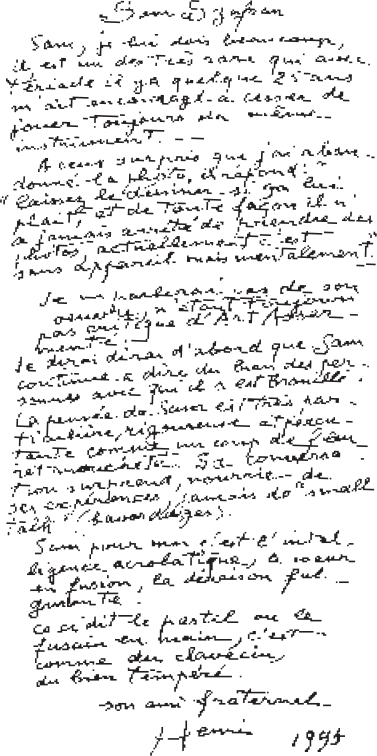 Sam Szafran
Sam, je lui dois beaucoup,
il est un des très rare qui avec
Tériade il y a quelque 25 ans
m'ait encouragé à cesser de
jouer toujours du même
instrument. —
A ceux surpris que j'ai aban-
donné la photo, il répond :
"laissez le dessiner si ça lui
plait, et de toute façon il n'
a jamais arrêté de prendre des
photos, actuellement c'est
sans appareil mais mentalement".
Je ne parlerai pas de son
œuvre, n'étant toujours
pas critique d'Art, Asser-
mente !
Je dirai d'abord que Sam
continue à dire du bien des per-
sonnes avec qui il s'est brouillé.
La pensée de Sam est très par-
ticulière, rigoureuse et percu-
tante comme un coup de fleu-
ret moucheté. Sa conversa-
tion surprend, nourrie de
ses expériences, jamais de "small
talk" (bavardages).
Sam pour moi c'est l'intel-
ligence acrobatique, le cœur
en fusion, la déraison ful-
gurante.
Ceci dit le pastel ou le
fusain en main, c'est
comme du clavecin,
du bien tempéré.
son ami fraternel
Henri 1995